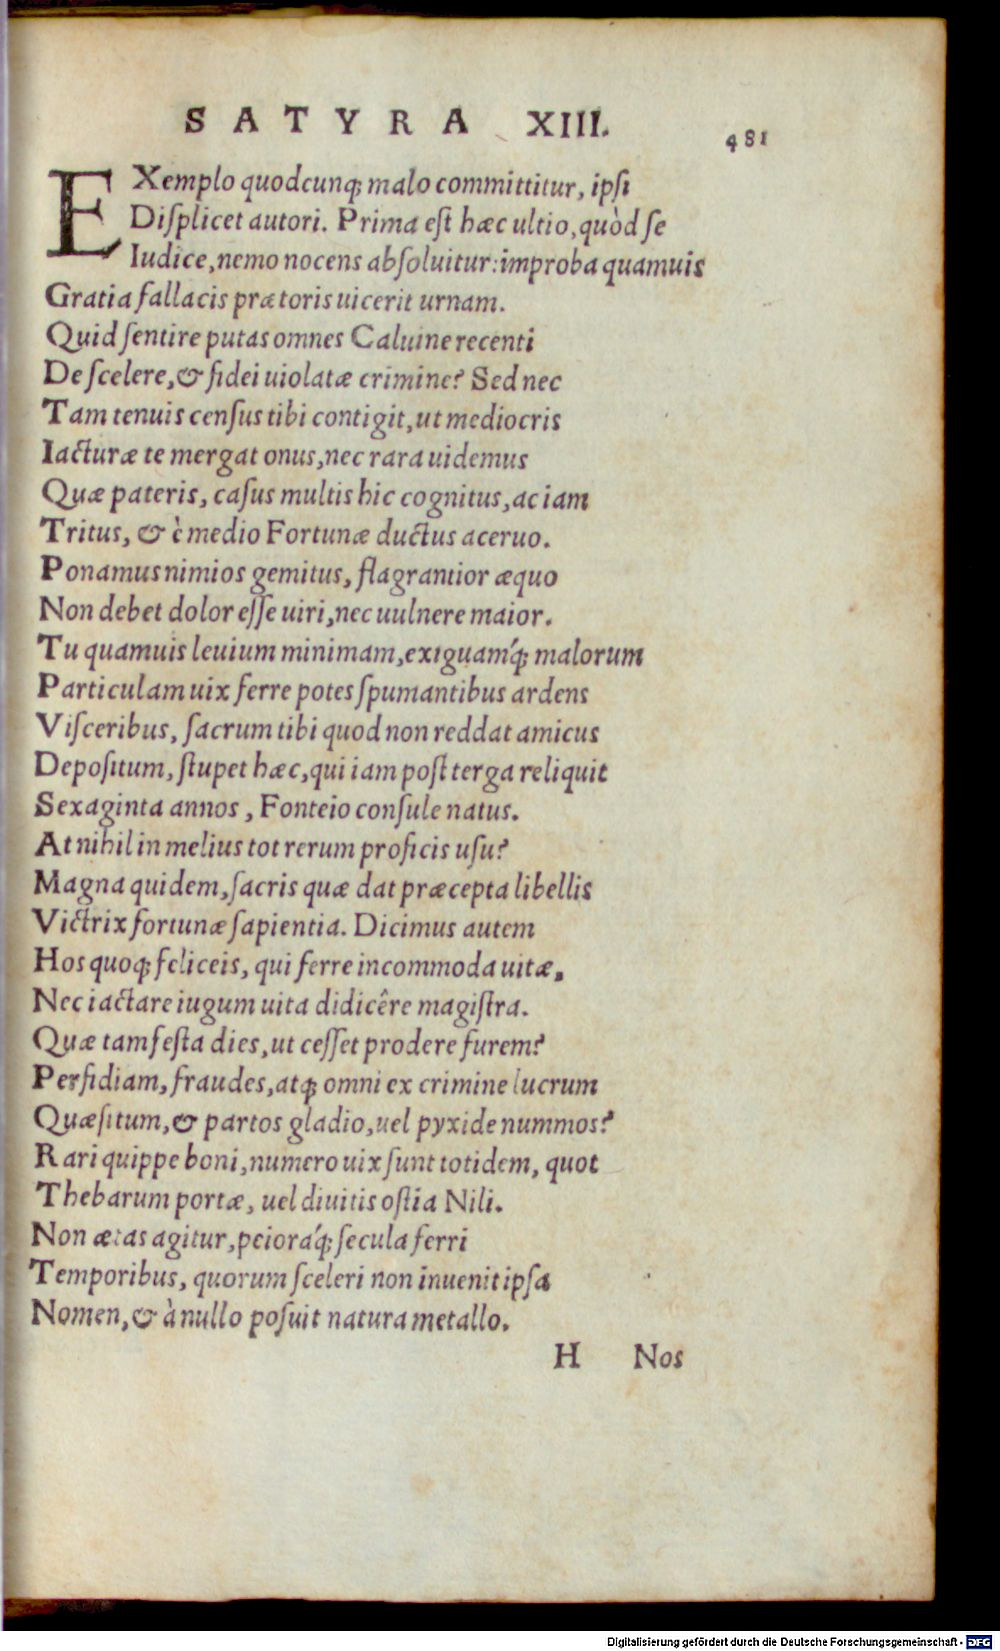 SATYRA XIII.
481
EXemplo quodcunq; malo committitur, ipſi
Diſplicet autori. Prima eſt hæc ultio, quòd ſe
Iudice, nemo nocens abſoluitur: improba quamuis
Gratia fallacis prætoris uicerit urnam.
Quid ſentire putas omnes Caluine recenti
De ſcelere, & fidei uiolatæ crimine? Sed nec
Tam tenuis cenſus tibi contigit, ut mediocris
Iacturæ te mergat onus, nec rara uidemus
Quæ pateris, caſus multis hic cognitus, ac iam
Tritus, & è medio Fortunæ ductus aceruo.
Ponamus nimios gemitus, flagrantior æquo
Non debet dolor eſſe uiri, nec uulnere maior.
Tu quamuis leuium minimam, exiguamq́; malorum
Particulam uix ferre potes ſpumantibus ardens
Viſceribus, ſacrum tibi quod non reddat amicus
Depoſitum, ſtupet hæc, qui iam poſt terga reliquit
Sexaginta annos, Fonteio conſule natus.
At nihil in melius tot rerum proficis uſu?
Magna quidem, ſacris quæ dat præcepta libellis
Victrix fortunæ ſapientia. Dicimus autem
Hos quoq; feliceis, qui ferre incommoda uitæ,
Nec iactare iugum uita didicêre magiſtra.
Quæ tam feſta dies, ut ceſſet prodere furem?
Perfidiam, fraudes, atq; omni ex crimine lucrum
Quæſitum, & partos gladio, uel pyxide nummos?
Rari quippe boni, numero uix ſunt totidem, quot
Thebarum portæ, uel diuitis oſtia Nili.
Non ætas agitur, peioraq́; ſecula ferri
Temporibus, quorum ſceleri non inuenit ipſa
Nomen, & à nullo poſuit natura metallo.
H Nos
Digitalisierung gefördert durch die Deutsche Forschungsgemeinschaft - DFG